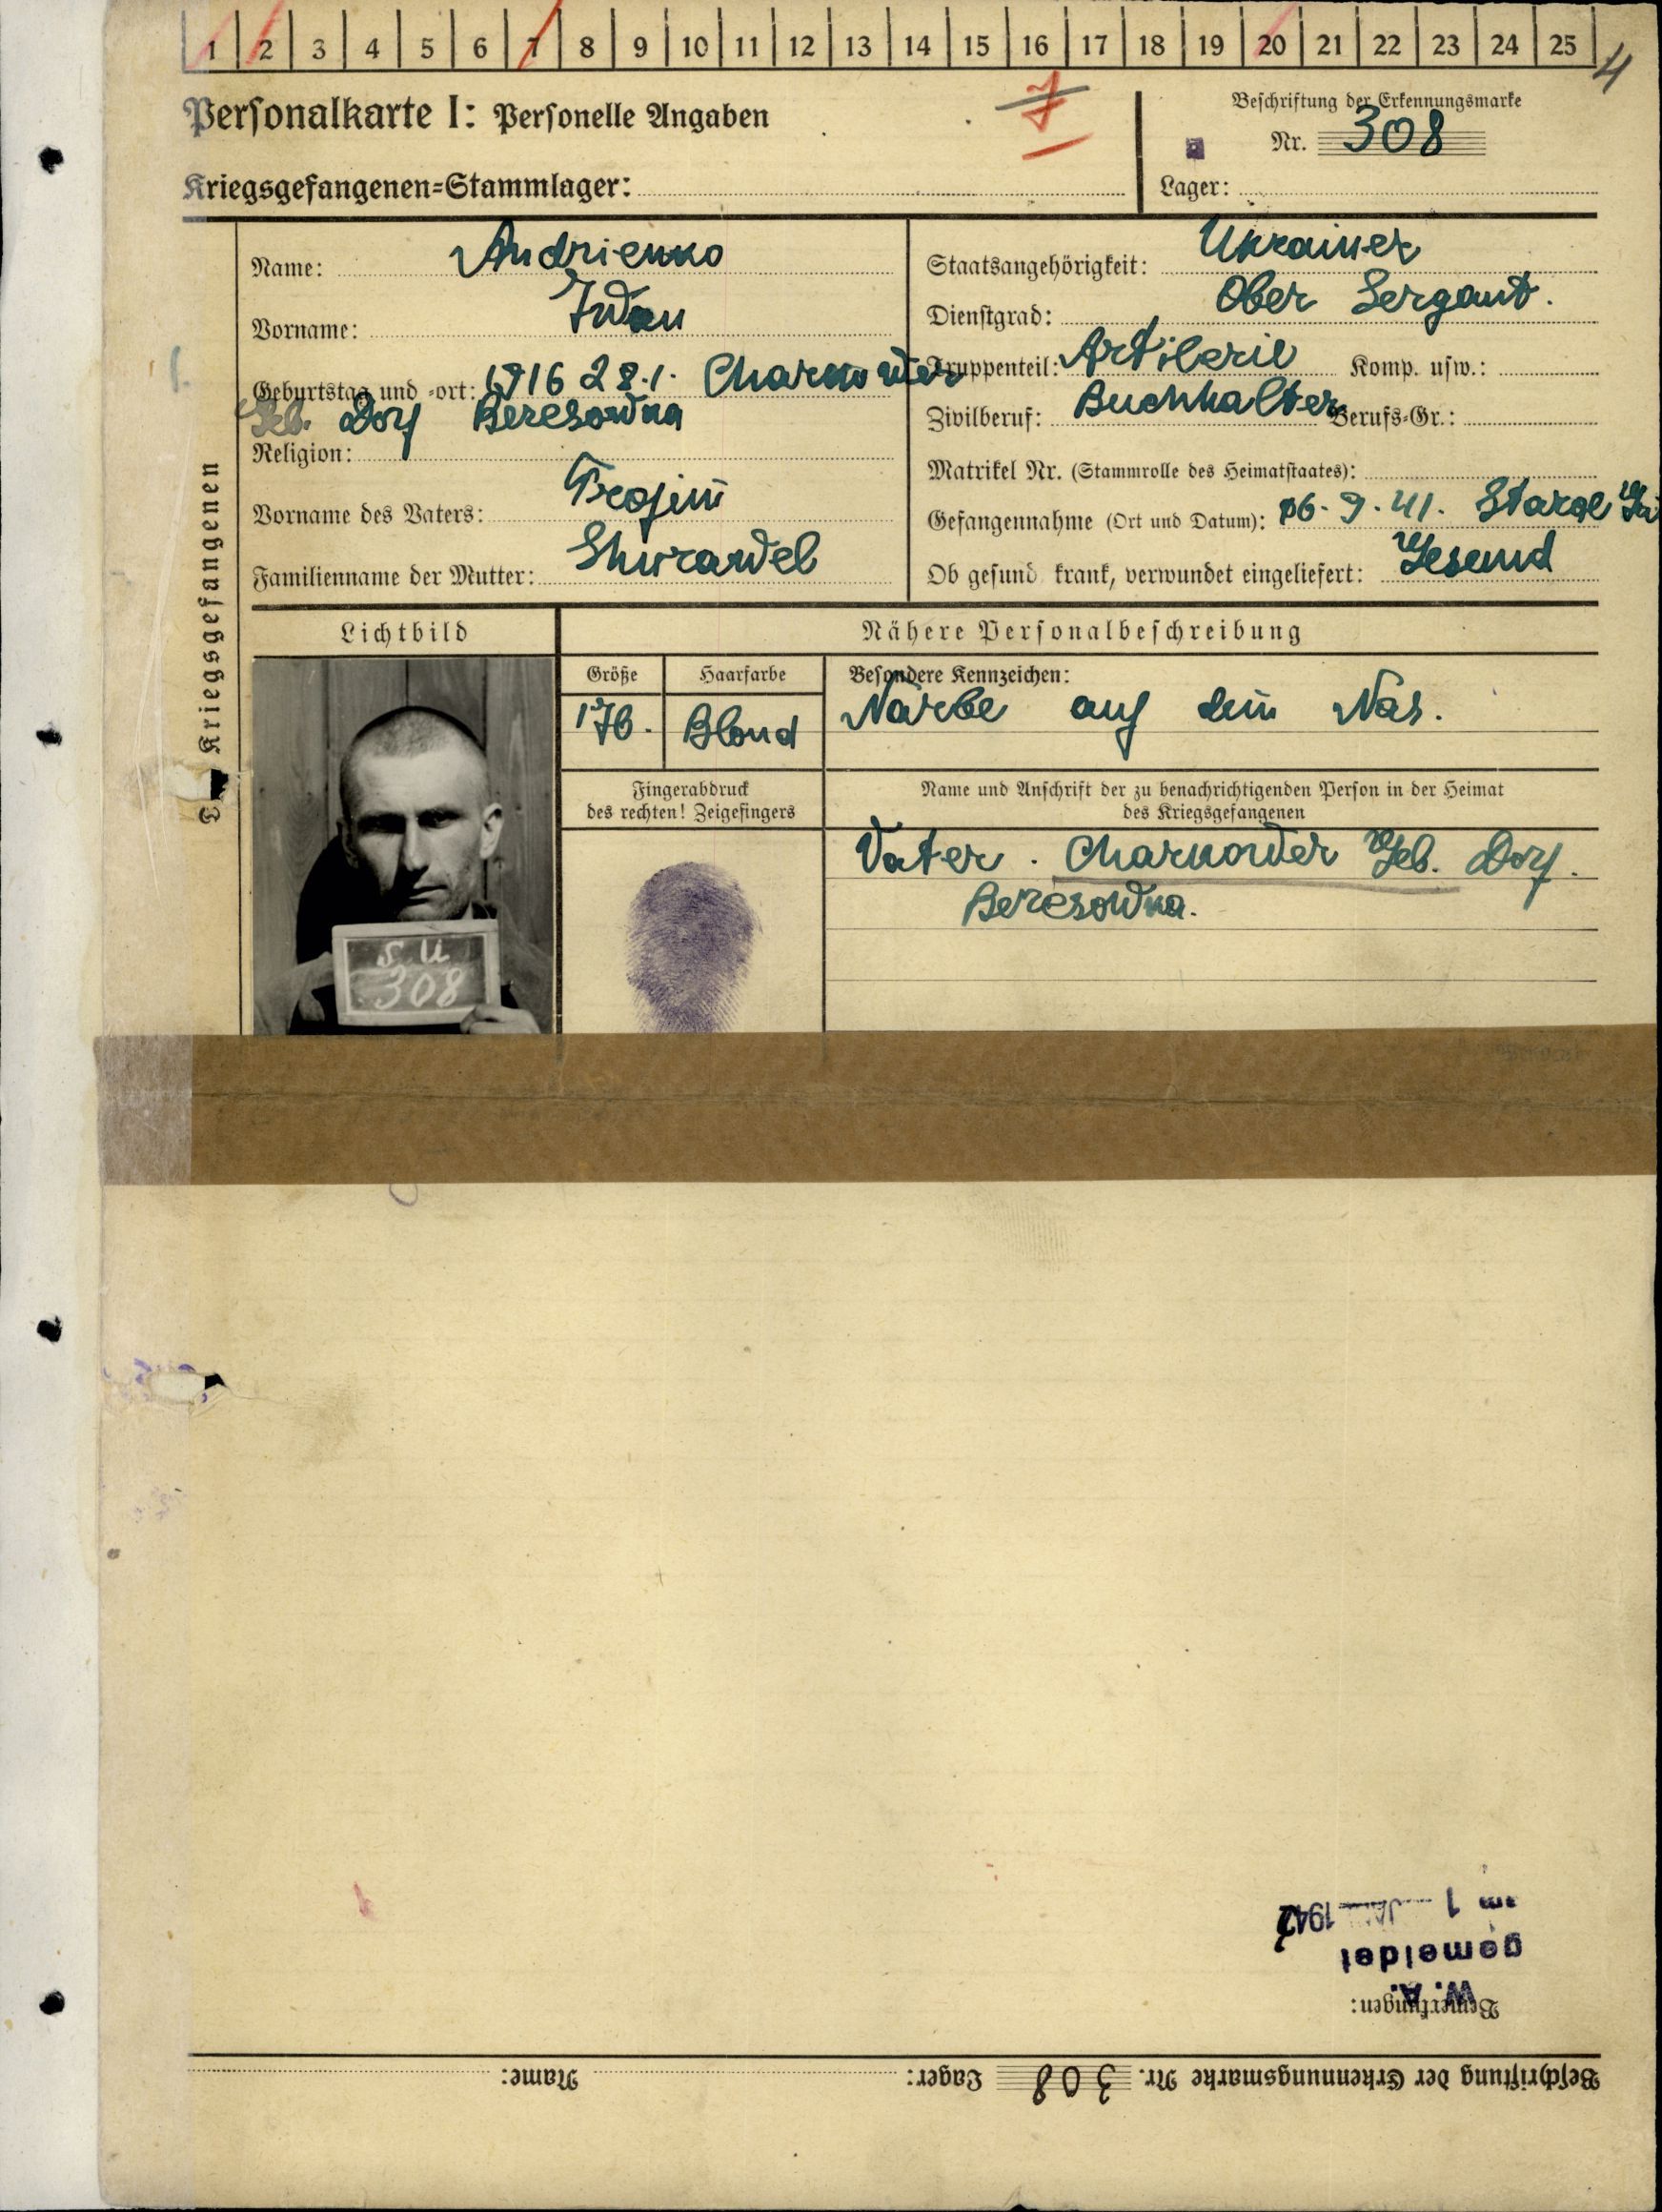 1 2 3 4 5 6 7 8 9 10 11 12 13 14 15 16 17 18 19 20 21 22 23 24 25
4
Personalkarte I: Personelle Angaben
7
Beschriftung der Erkennungsmarke
Nr. 308
Kriegsgefangenen=Stammlager:
Lager:
Kriegsgefangenen
Name: Andrienko
Vorname: Iwan
Geburtstag und -ort: 1916 28.1. Charkower
Geb. Dorf Beresowka
Religion:
Vorname des Vaters: Trofim
Familienname der Mutter: Shurawel
Staatsangehörigkeit: Ukrainer
Dienstgrad: Ober Sergant.
Truppenteil: Artilerie Komp. usw.:
Zivilberuf: Buchhalter Berufs=Gr.:
Matrikel Nr. (Stammrolle des Heimatstaates):
Gefangennahme (Ort und Datum): 06.9.41.
Ob gesund krank, verwundet eingeliefert: Gesund
Lichtbild
Nähere Personalbeschreibung
Größe
176.
Haarfarbe
Blond
Besondere Kennzeichen:
Narbe auf dem Nas.
S U
308
Fingerabdruck
des rechten! Zeigefingers
Name und Anschrift der zu benachrichtigenden Person in der Heimat
des Kriegsgefangenen
Vater. Charkower Geb. Dorf.
Beresowka.
Beschriftung der Erkennungsmarke Nr. 308 Lager: Name:
Bemerkungen:
W. A.
gemeldet
am 1 JAN. 1942